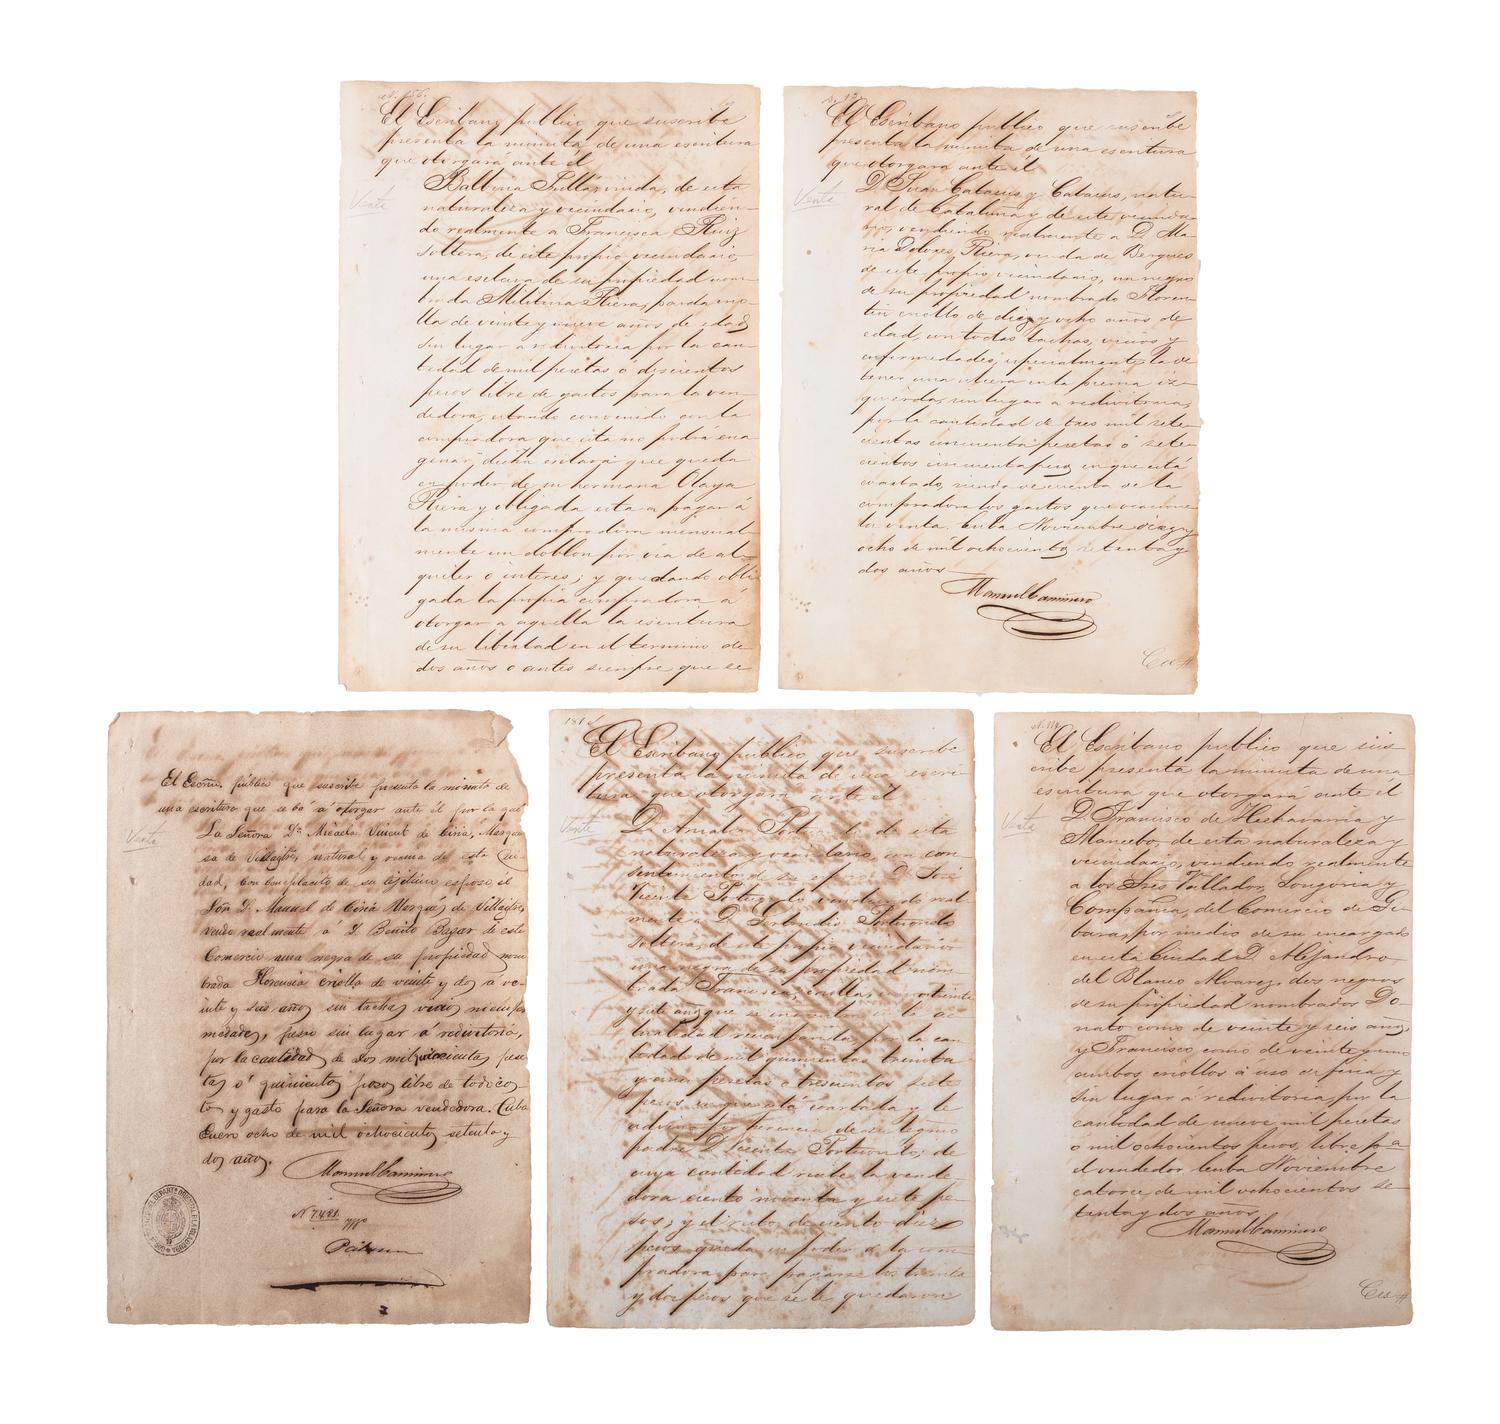 El Escribano publico que suscribe
presenta la minuta, de una escritura
que otorgará ante él
Venta
Balbina viuda, de esta
naturaleza y vecindario, vendien-
do realmente a Francisca Ruiz
soltera, de este propio vecindario,
una esclava de su propiedad nom-
brada Riera, parda
de veinte y nueve años de edad
sin lugar a redivitoria por la can-
tidad de mil pesetas ó doscientos
pesos libre de gastos para la ven-
dedora, estando convenido con la
compradora que esta no podrá ena-
genar dicha esclava que queda
en poder de su hermana Olaya
Riera y obligada esta a pagar á
la misma compradora mensual-
mente un doblon por via de al-
quiler o interes; y quedando obli-
gada la propia compradora á
otorgar a aquella la escritura
de su libertad en el termino de
dos años o antes siempre que se
El Escribano publico que suscribe
presenta la minuta de una escritura
que otorgara ante él
Venta
D. Juan Catasus y Catasus, natu-
ral de Cataluña y de este vecinda-
rio, vendiendo realmente a Dª Ma-
ria Dolores Riera, viuda de Bergues
de este propio vecindario, un negro
de su propiedad nombrado Floren-
tin criollo de diez y ocho años de
edad, con todas tachas, vicios y
enfermedades, especialmente la de
tener una ulcera en la pierna iz-
quierda, sin lugar a redivitoria,
por la cantidad de tres mil sete-
cientas cincuenta pesetas ó sete-
cientos cincuenta pesos en que está
coartado, siendo de cuenta de la
compradora los gastos que ocasione
la venta. Cuba Noviembre diez y
ocho de mil ochocientos setenta y
dos años
Manuel Caminero
El Escno. público que suscribe presenta la minuta de
una escritura que se bá á otorgar ante él por la que
Venta
La Señora Dª Micaela Vinent de Ciria, Marque-
sa de Villaytre, natural y vecina de esta Ciu-
dad, con complacito de su lejitimo esposo el
Señor D. Manuel de Ciria Marqués de Villaytre,
vende realmente á D. Benito Bagar de este
Comercio una negra de su propiedad nom-
brada Florencia criolla de veinte y dos á ve-
inte y seis años sin tachas vicios ni enfer-
medades, pero sin lugar a redivitoria,
por la cantidad de dos mil quinientas pese-
tas ó quinientos pesos libre de todo cos-
to y gasto para la Señora vendedora. Cuba
Enero ocho de mil ochocientos setenta y
dos años.
Manuel Caminero
El Escribano publico que suscribe
presenta la minuta de una escri-
tura que otorgará ante él
Venta
Dª Amalia de esta
naturaleza y vecindario, con con-
sentimiento de su esposo D. José
Vicente vendiendo real-
mente a Dª Portuondo
soltera, de este propio vecindario
una negra de su propiedad nom-
brada Francisca, criolla,
y siete años que se en la ac-
tualidad por la can-
tidad de mil quinientas treinta
y cinco pesetas o trescientos siete
pesos en que está coartada y le
por herencia de su legmo
padre D. Portuondo; de
cuya cantidad recibe la vende-
dora ciento noventa y siete pe-
sos, y el resto de ciento diez
pesos queda en poder de la com-
pradora para pagarse los treinta
y dos pesos que se le quedaron
El Escribano publico que sus-
cribe presenta la minuta de una
escritura que otorgará ante él
Venta
D. Francisco de Hechavarria y
Mancebo, de esta naturaleza y
vecindario, vendiendo realmente
a los Sres Vallador, Longoria y
Compañia, del Comercio de Gi-
bara, por medio de su encargado
en esta Ciudad D. Alejandro
del Blanco Alvarez, dos negros
de su propiedad nombrados Do-
nato como de veinte y seis años,
y Francisco como de veinte y uno
ambos criollos á uso de feria y
sin lugar a redivitoria por la
cantidad de nueve mil pesetas
ó mil ochocientos pesos, libre pa
el vendedor. Cuba Noviembre
catorce de mil ochocientos se-
tenta y dos años.
Manuel Caminero